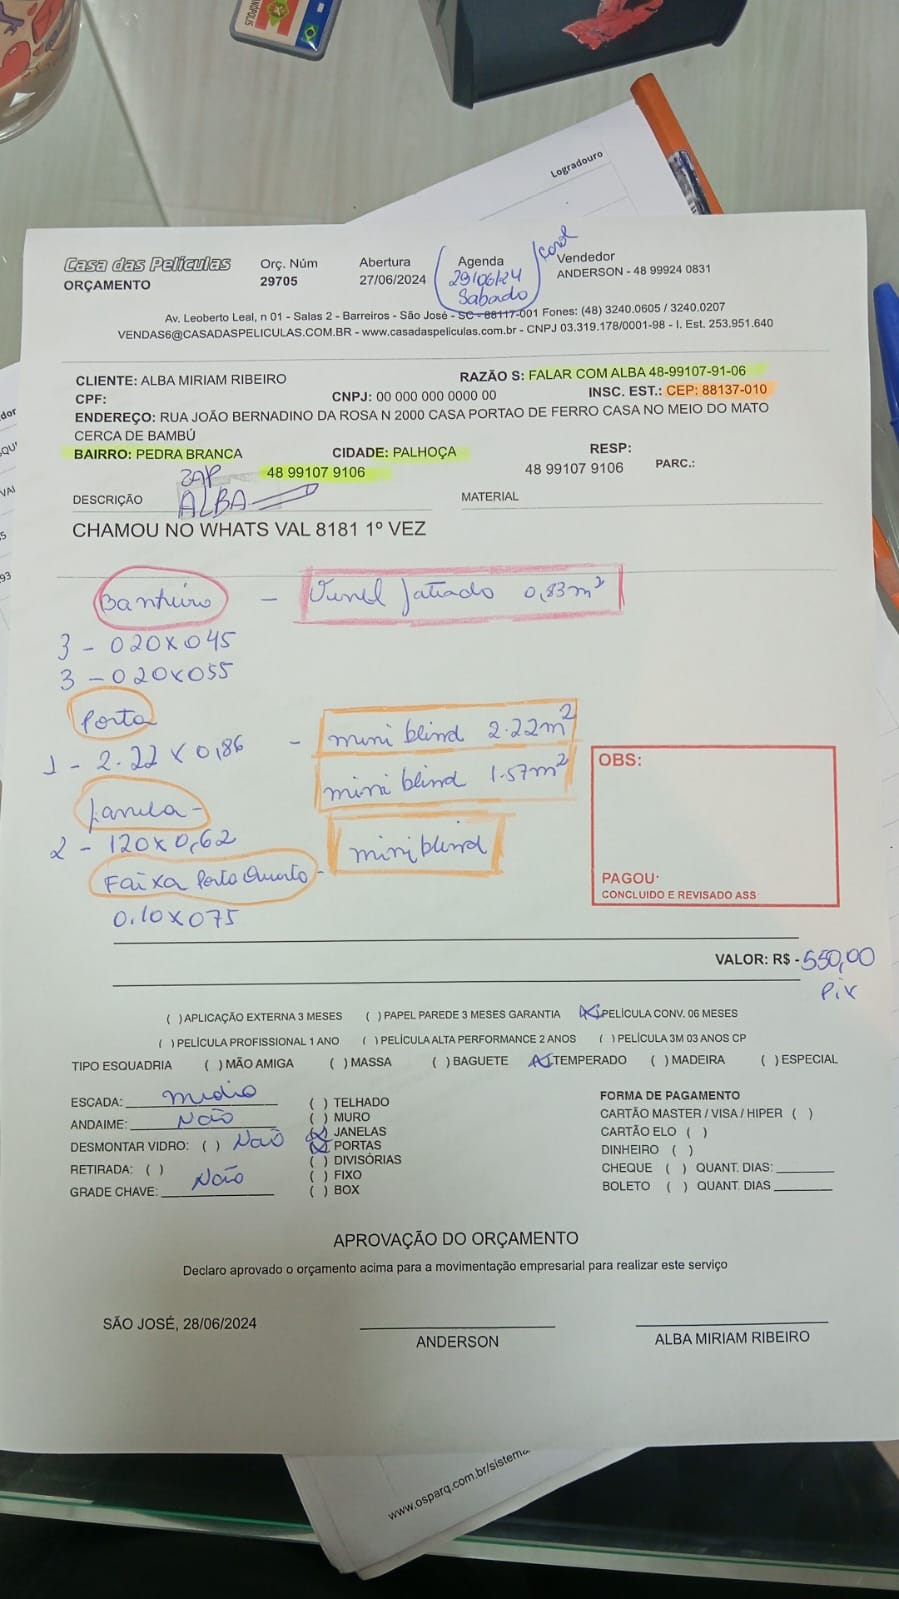 NÓPOLIS
Logradouro
Casa das Películas
ORÇAMENTO
Orç. Núm
29705
Abertura
27/06/2024
Agenda
29/06/24
Sabado
Vendedor
ANDERSON - 48 99924 0831
Av. Leoberto Leal, n 01 - Salas 2 - Barreiros - São José - SC - 88117-001 Fones: (48) 3240.0605 / 3240.0207
VENDAS6@CASADASPELICULAS.COM.BR - www.casadaspeliculas.com.br - CNPJ 03.319.178/0001-98 - I. Est. 253.951.640
CLIENTE: ALBA MIRIAM RIBEIRO
RAZÃO S: FALAR COM ALBA 48-99107-91-06
CPF:
CNPJ: 00 000 000 0000 00
INSC. EST.: CEP: 88137-010
ENDEREÇO: RUA JOÃO BERNADINO DA ROSA N 2000 CASA PORTAO DE FERRO CASA NO MEIO DO MATO
CERCA DE BAMBÚ
BAIRRO: PEDRA BRANCA
CIDADE: PALHOÇA
RESP:
ZAP
48 99107 9106
48 99107 9106
PARC.:
DESCRIÇÃO
ALBA
MATERIAL
CHAMOU NO WHATS VAL 8181 1º VEZ
Banheiro - Vinil Jatiado 0,83m²
3 - 020x045
3 - 020x055
Porta
1 - 2.22 x 0,86 - mini blind 2.22m²
mini blind 1.57m²
Janela -
2 - 120x0,62
mini blind
Faixa Porta Quarto -
0,10x075
OBS:
PAGOU:
CONCLUIDO E REVISADO ASS
VALOR: R$ - 550,00
Pix
( ) APLICAÇÃO EXTERNA 3 MESES ( ) PAPEL PAREDE 3 MESES GARANTIA (X) PELÍCULA CONV. 06 MESES
( ) PELÍCULA PROFISSIONAL 1 ANO ( ) PELÍCULA ALTA PERFORMANCE 2 ANOS ( ) PELÍCULA 3M 03 ANOS CP
TIPO ESQUADRIA ( ) MÃO AMIGA ( ) MASSA ( ) BAGUETE (X) TEMPERADO ( ) MADEIRA ( ) ESPECIAL
ESCADA: medio
ANDAIME: Não
DESMONTAR VIDRO: ( ) Não
RETIRADA: ( )
GRADE CHAVE: Não
( ) TELHADO
( ) MURO
(X) JANELAS
(X) PORTAS
( ) DIVISÓRIAS
( ) FIXO
( ) BOX
FORMA DE PAGAMENTO
CARTÃO MASTER / VISA / HIPER ( )
CARTÃO ELO ( )
DINHEIRO ( )
CHEQUE ( ) QUANT. DIAS:
BOLETO ( ) QUANT. DIAS
APROVAÇÃO DO ORÇAMENTO
Declaro aprovado o orçamento acima para a movimentação empresarial para realizar este serviço
SÃO JOSÉ, 28/06/2024
ANDERSON
ALBA MIRIAM RIBEIRO
www.osparq.com.br/sistema